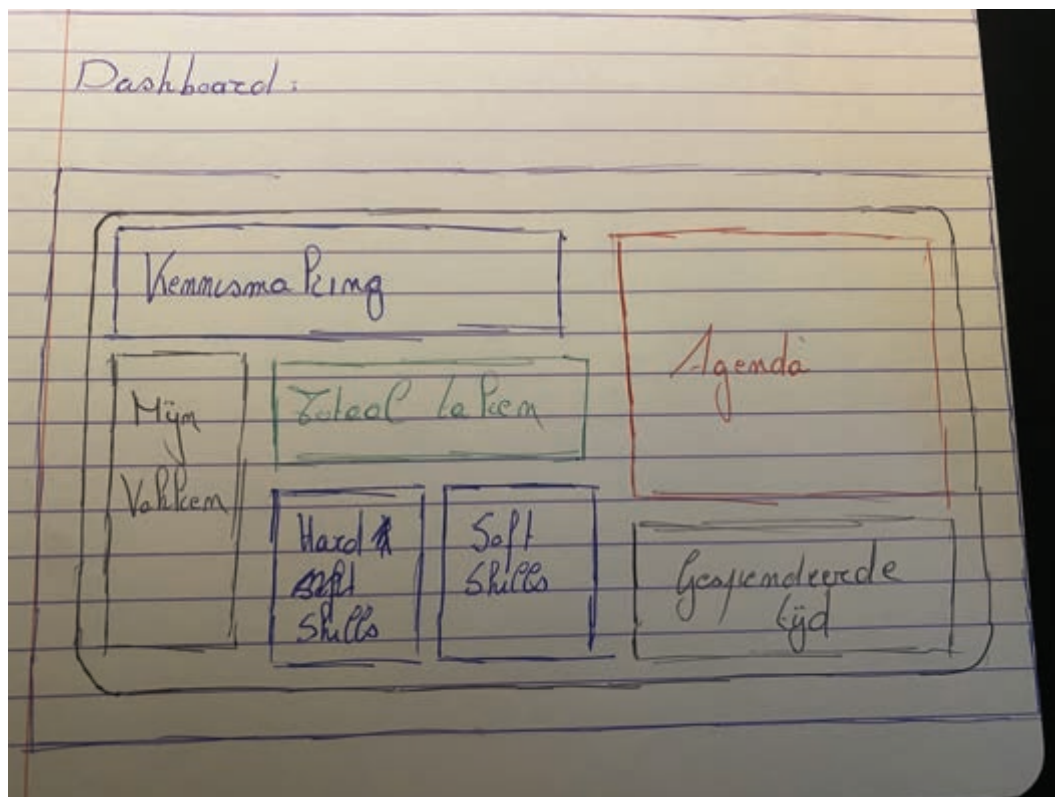 Dashboard:
Kennismaking
Agenda
Mijn
Vakken
Totaal taken
Hard
Skills
Soft
Skills
Gespendeerde
tijd